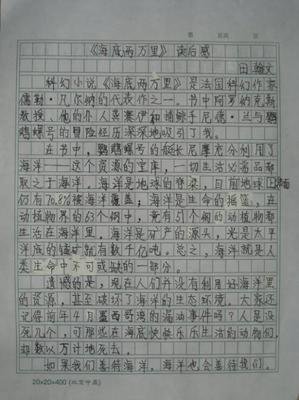 《海底两万里》读后感
田翰文
科幻小说《海底两万里》是法国科幻作家
儒勒·凡尔纳的代表作之一。书中阿罗纳克斯
教授、他的仆人龚赛伊和捕鲸手尼德·兰与鹦
鹉螺号的冒险经历深深地吸引了我。
在书中,鹦鹉螺号的艇长尼摩充分利用了
海洋——这个资源的宝库,一切生活必需品都
取之于海洋。海洋是地球的脊梁,目前地球上
仍有70.8%被海洋覆盖,海洋是生命的摇篮,在
动植物界的63个纲中,竟有51个纲的动植物都
生活在海洋里,海洋是矿产的源头,光是太平
洋底的锰矿就有数千亿吨。总之,海洋就是人
类生命中不可或缺的一部分。
遗憾的是,现在人们并没有利用好海洋里
的资源,甚至破坏了海洋的生态环境。大家还
记得前年4月墨西哥湾的漏油事件吗?人是没
死几个,可那些在海底快快乐乐生活的动物们,
却数以万计地死去。
如果我们善待海洋,海洋也会善待我们。
20×20=400